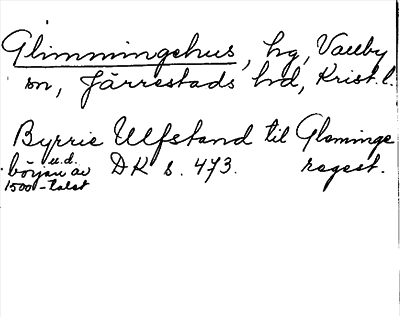 Glimmingehus, hg, Vallby
sn, Järrestads hd, Krist. l.
Byrrie Ulfstand til Glominge
u.d.
början av DK s. 473. regest.
1500-talet